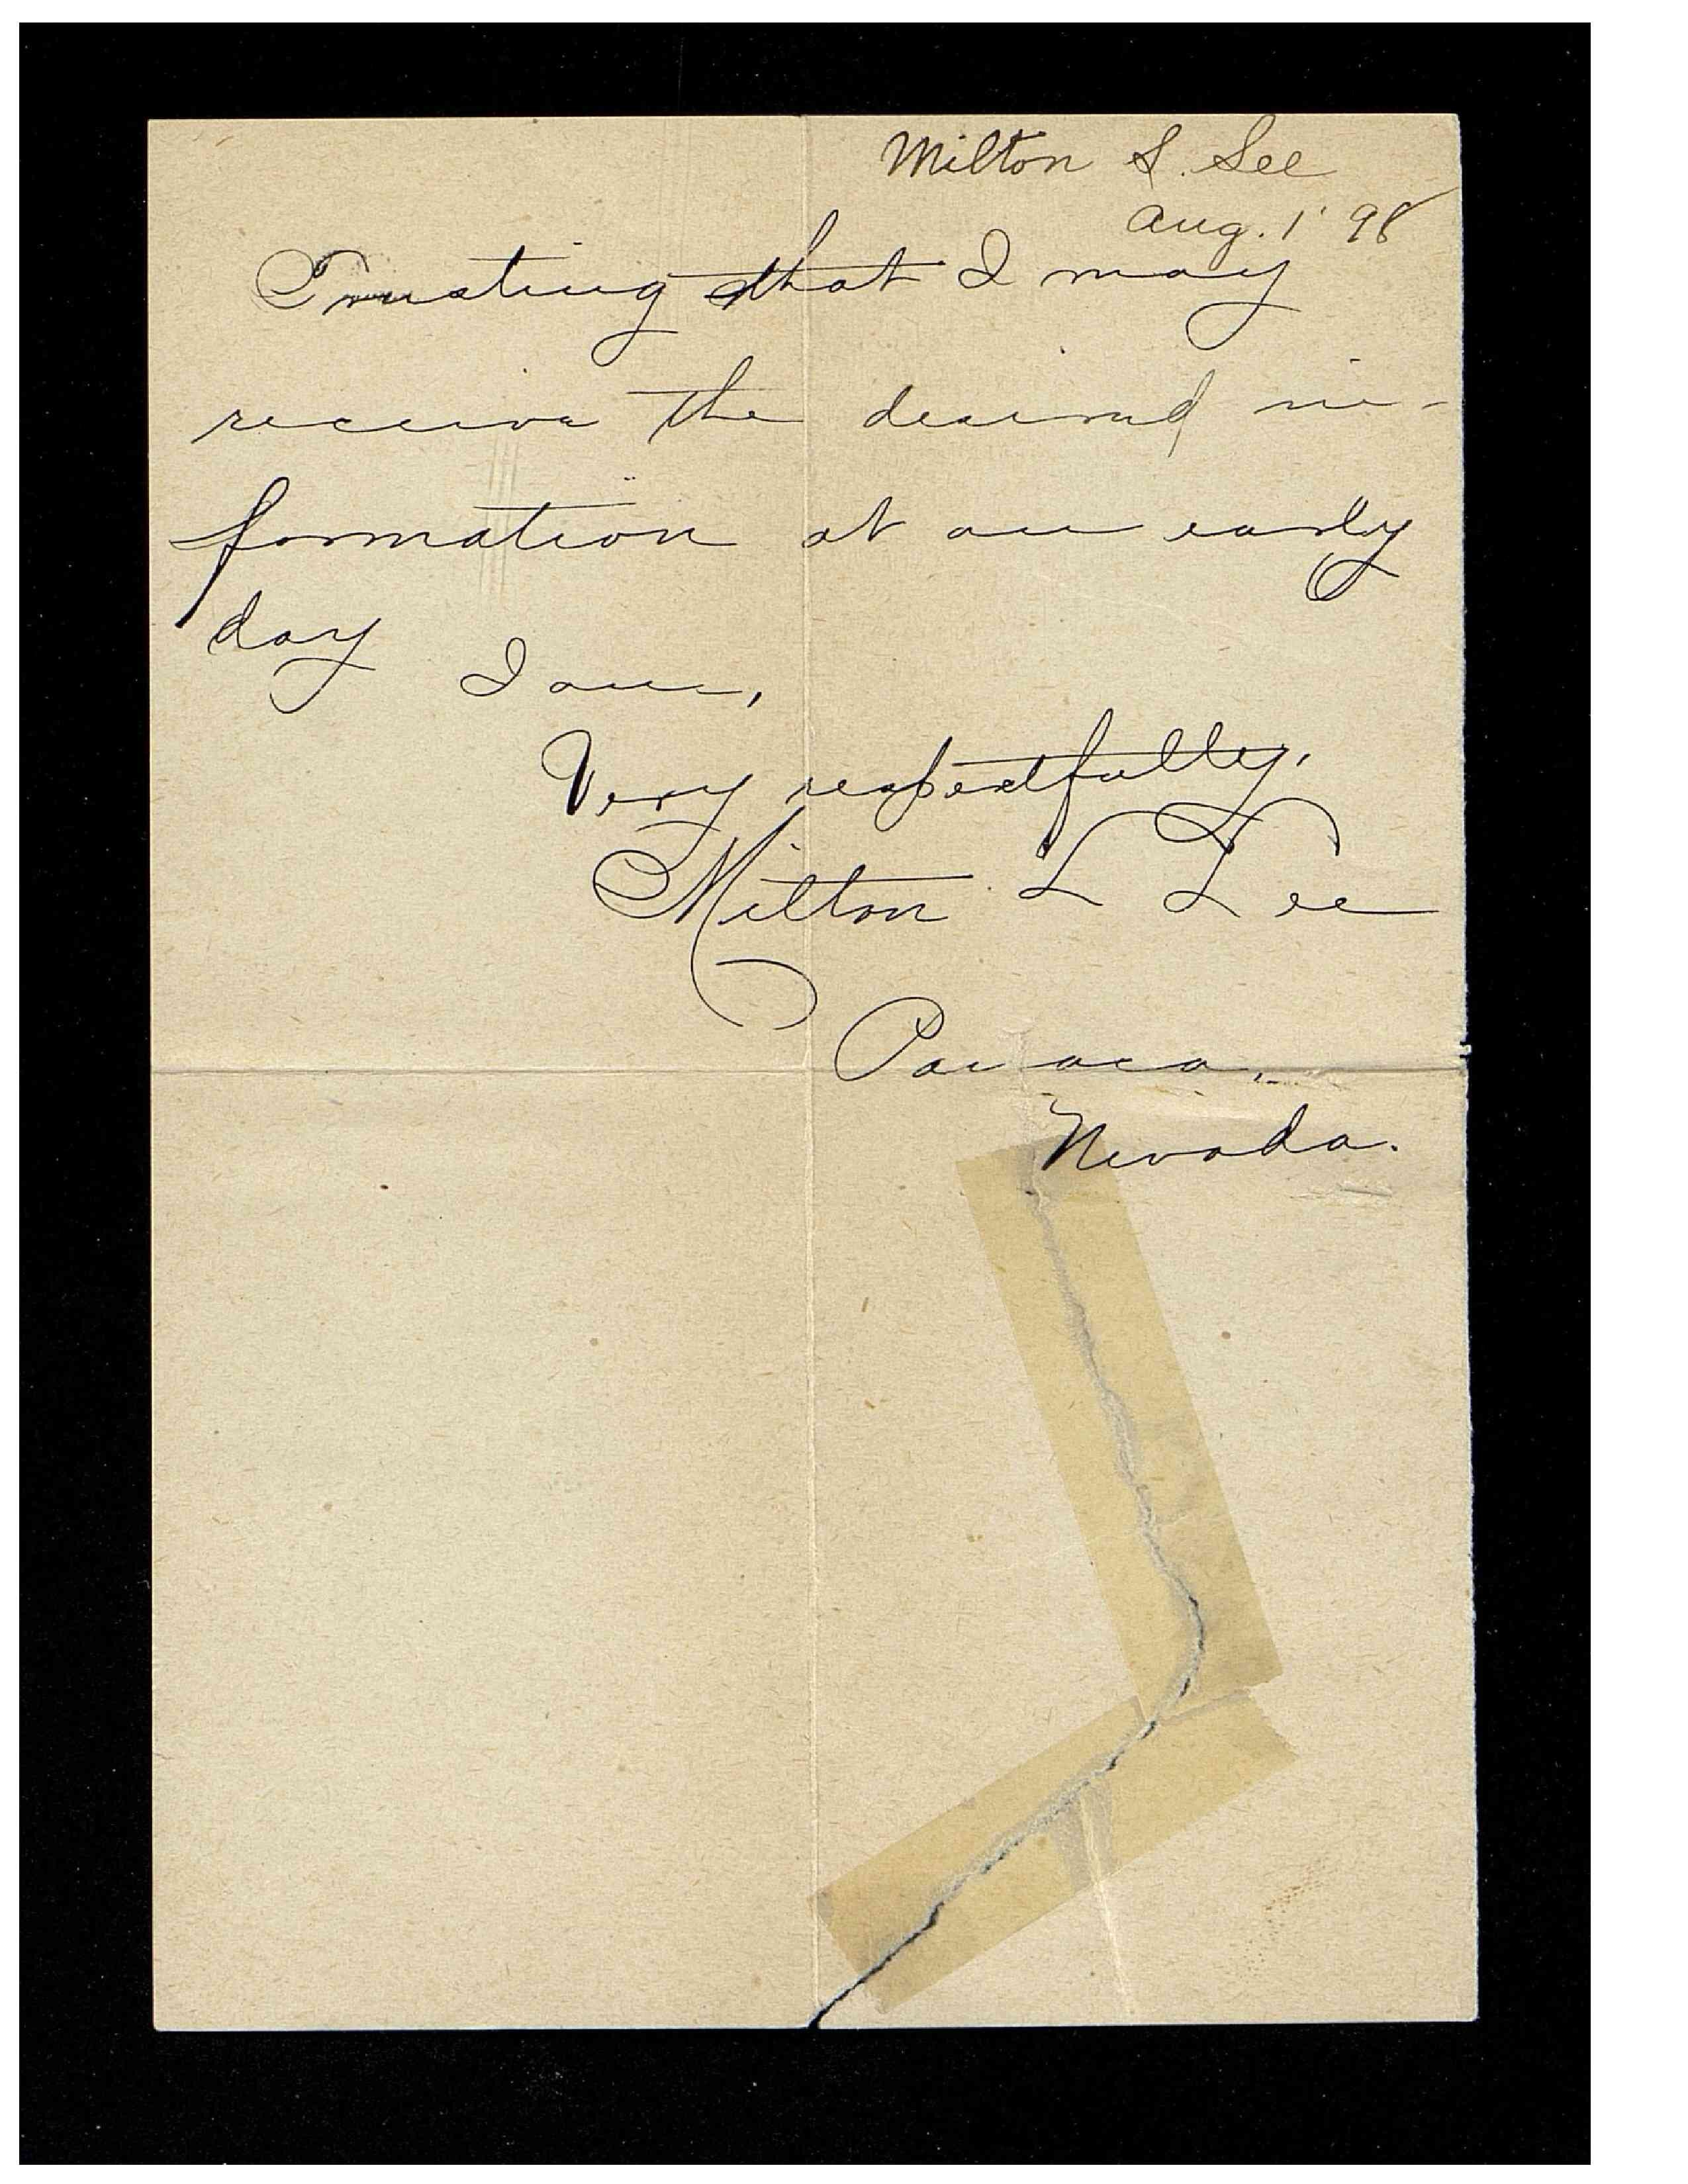 Milton L. Lee
Aug. 1 '98
Trusting that I may
receive the desired in-
formation at an early
day
I am,
Very respectfully,
Milton L Lee
Panaca,
Nevada.